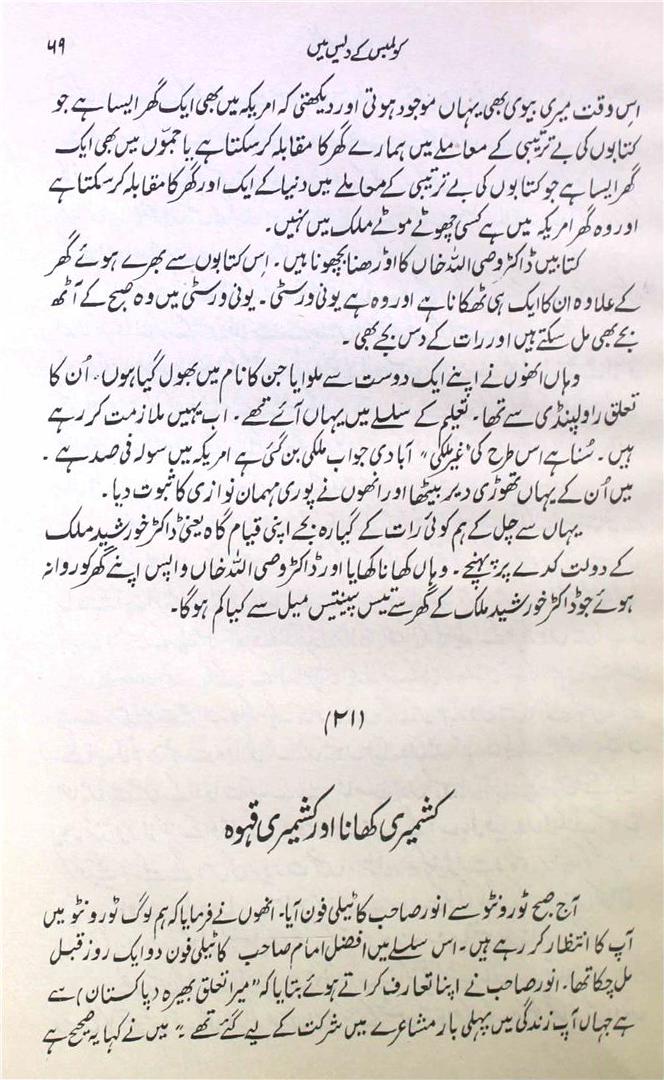 کولمبس کے دیس میں
۶۹
اس وقت میری بیوی بھی یہاں موجود ہوتی اور دیکھتی کہ امریکہ میں بھی ایک گھر ایسا ہے جو
کتابوں کی بے ترتیبی کے معاملے میں ہمارے گھر کا مقابلہ کر سکتا ہے یا جمّوں میں بھی ایک
گھر ایسا ہے جو کتابوں کی بے ترتیبی کے معاملے میں دنیا کے ایک اور گھر کا مقابلہ کر سکتا ہے
اور وہ گھر امریکہ میں ہے کسی چھوٹے موٹے ملک میں نہیں۔
کتابیں ڈاکٹر وصی اللہ خاں کا اوڑھنا بچھونا ہیں۔ اس کتابوں سے بھرے ہوئے گھر
کے علاوہ ان کا ایک ہی ٹھکانا ہے اور وہ ہے یونی ورسٹی۔ یونی ورسٹی میں وہ صبح کے آٹھ
بجے بھی مل سکتے ہیں اور رات کے دس بجے بھی۔
وہاں انھوں نے اپنے ایک دوست سے ملوایا جن کا نام میں بھول گیا ہوں۔ اُن کا
تعلق راولپنڈی سے تھا۔ تعلیم کے سلسلے میں یہاں آئے تھے۔ اب یہیں ملازمت کر رہے
ہیں۔ سُنا ہے اس طرح کی "غیر ملکی" آبادی جو اب ملکی بن گئی ہے امریکہ میں سولہ فی صد ہے۔
میں اُن کے یہاں تھوڑی دیر بیٹھا اور انھوں نے پوری مہمان نوازی کا ثبوت دیا۔
یہاں سے چل کے ہم کوئی رات کے گیارہ بجے اپنی قیام گاہ یعنی ڈاکٹر خورشید ملک
کے دولت کدے پر پہنچے۔ وہاں کھانا کھایا اور ڈاکٹر وصی اللہ خاں واپس اپنے گھر کو روانہ
ہوئے جو ڈاکٹر خورشید ملک کے گھر سے تیس پینتیس میل سے کیا کم ہوگا۔
(۲۱)
کشمیری کھانا اور کشمیری قہوہ
آج صبح ٹورونٹو سے انور صاحب کا ٹیلی فون آیا۔ انھوں نے فرمایا کہ ہم لوگ ٹورونٹو میں
آپ کا انتظار کر رہے ہیں۔ اس سلسلے میں افضل امام صاحب کا ٹیلی فون دو ایک روز قبل
مل چکا تھا۔ انور صاحب نے اپنا تعارف کراتے ہوئے بتایا کہ "میرا تعلق بھیرہ (پاکستان) سے
ہے جہاں آپ زندگی میں پہلی بار مشاعرے میں شرکت کے لیے گئے تھے"۔ میں نے کہا یہ صحیح ہے